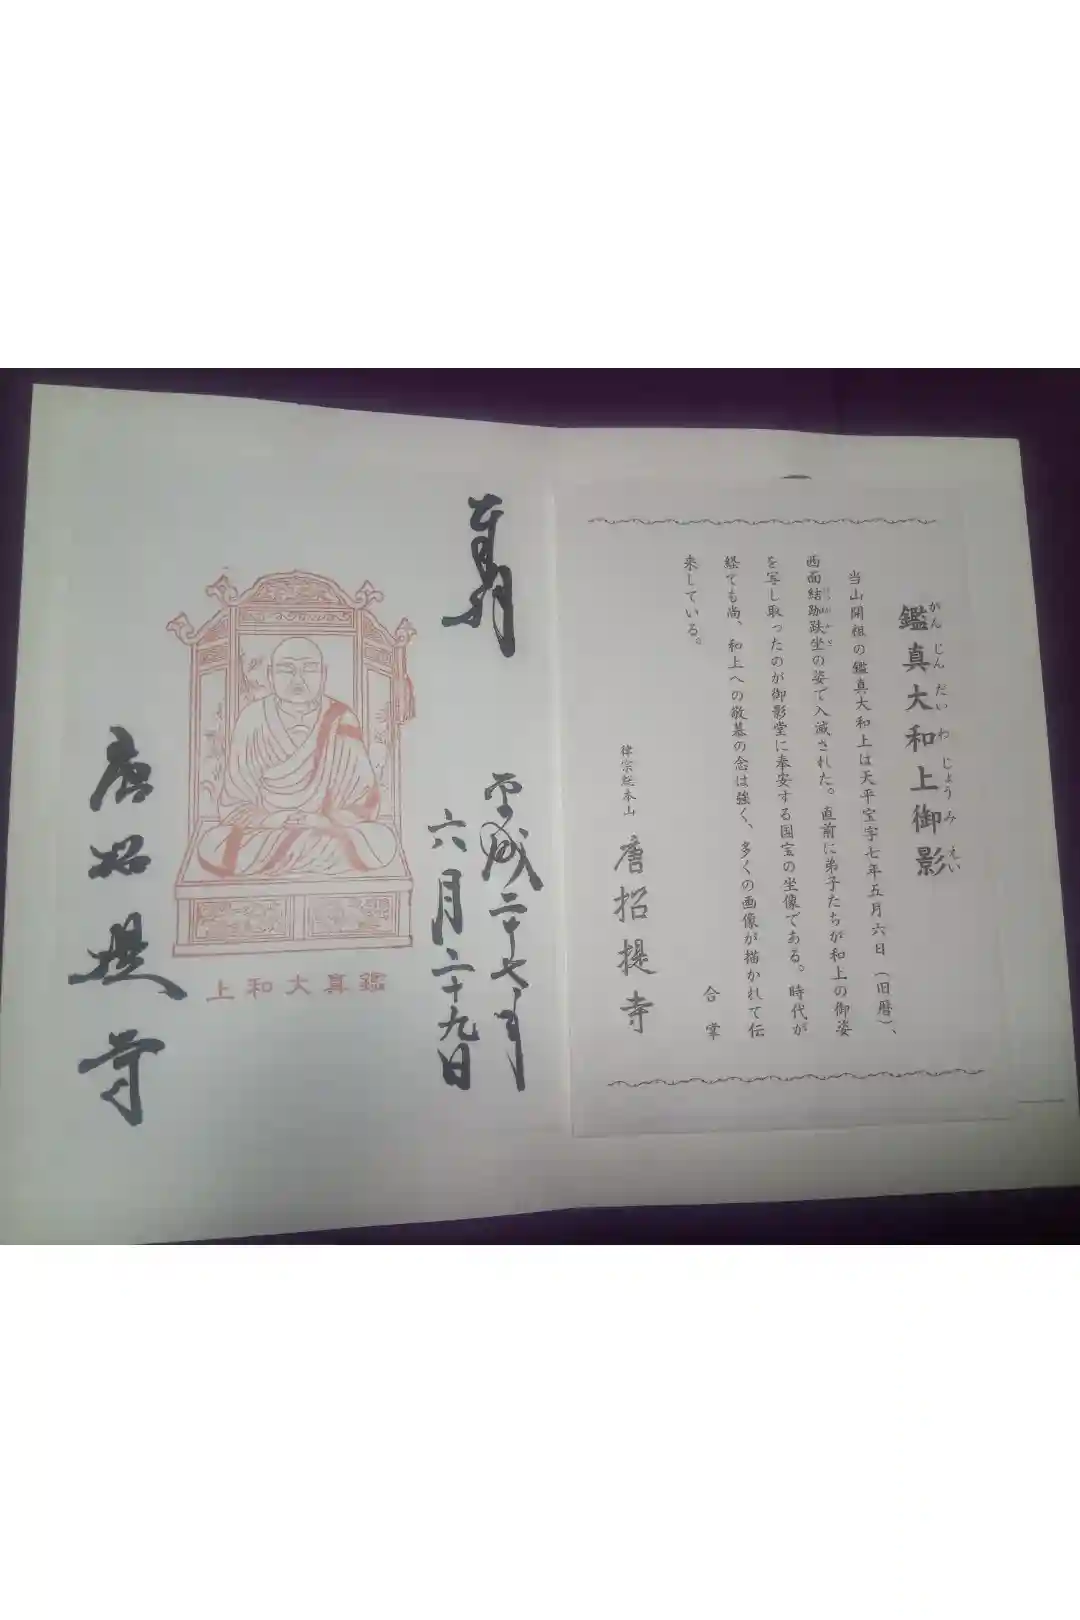 鑑真大和上御影
がんじんだいわじょうみえい
当山開祖の鑑真大和上は天平宝字七年五月六日(旧暦)、
西面結跏趺坐の姿で入滅された。直前に弟子たちが和上の御姿
を写し取ったのが御影堂に奉安する国宝の坐像である。時代が
経ても尚、和上への敬慕の念は強く、多くの画像が描かれて伝
来している。
合掌
律宗総本山 唐招提寺
奉拝
平成二十七年
六月二十九日
上和大真鑑
唐招提寺